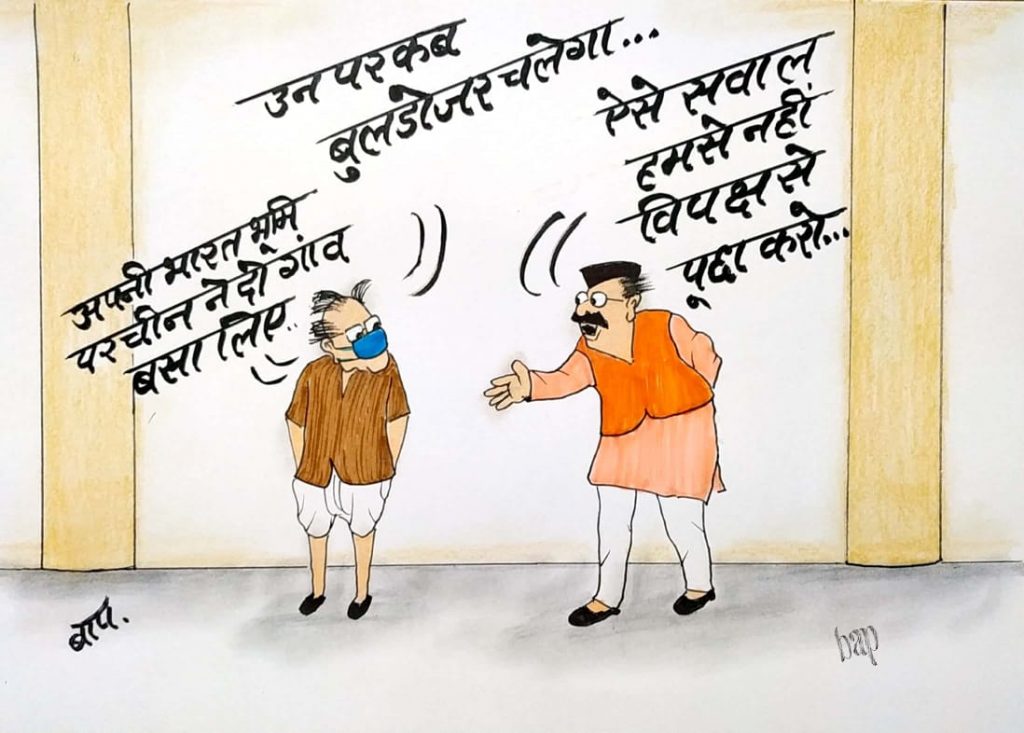 अपनी भारत भूमि
पर चीन ने दो गांव
बसा लिए..
उन पर कब
बुलडोजर चलेगा...
ऐसे सवाल
हमसे नहीं
विपक्ष से
पूछा करो...
बाप.
bap